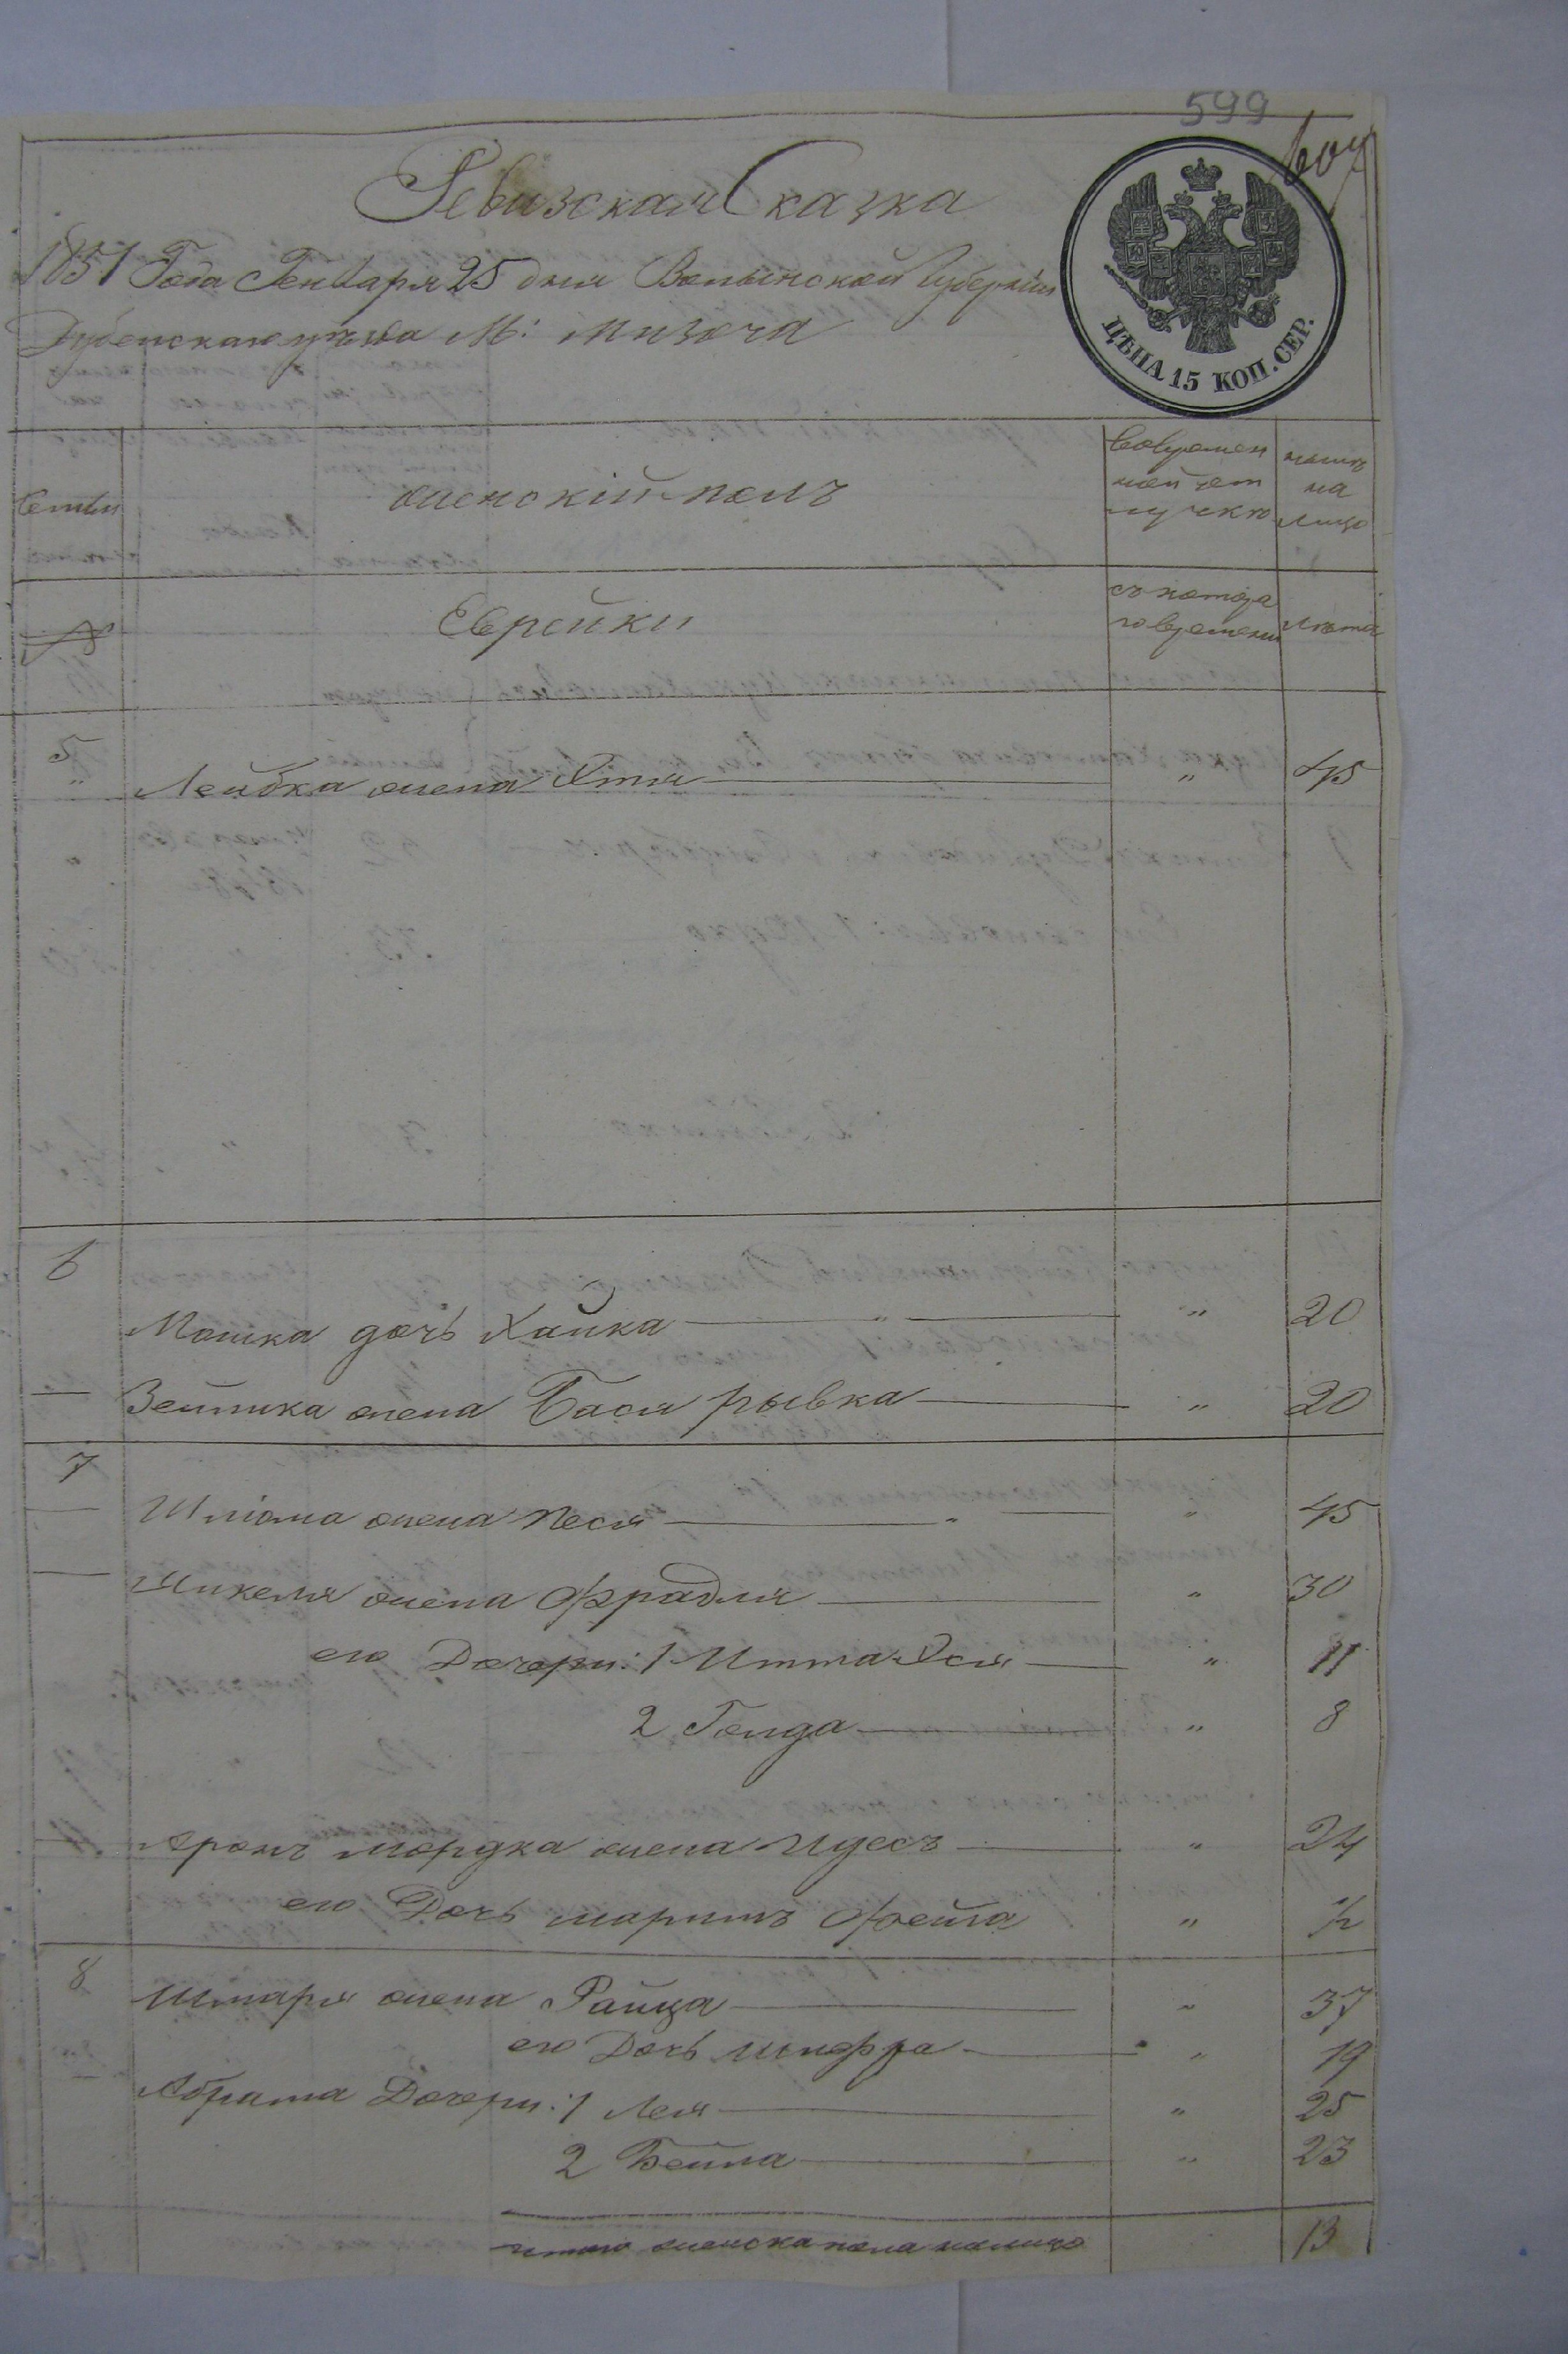 599
607
Ревизская Сказка
1851 Года Генваря 25 дня Волынской Губернии
Дубенскаго уезда М: Мизоча
ЦѢНА 15 КОП. СЕР.
Семьи
женскій полъ
Вовремен
ной от
лучке
ныне
на
лицо
№
Еврейки
съ котора
го времени
лета
5
" Лейбка жена Хтя " 45
6
Мошка дочь Хайка " " 20
Зейлика жена Бася рывка " 20
7
Шліома жена Песя " " 45
Жикеля жена Фрадля " 30
его Дочери: 1 Итта Хся " 11
2 Голда " 8
Аронъ мордка жена Идесъ " 24
его Дочь мариимъ Фейга " 1/2
8
Шмаря жена Райца " 37
его Дочь шифра " 19
Абрама Дочери: 1 Лея " 25
2 Бейла " 23
итого женска пола налицо 13